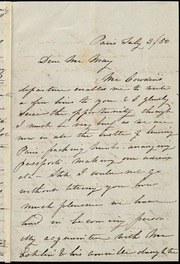 Paris July 3/50
Dear Mr May
Mr Cowdin's
departure enables me to write
a few lines to you & I gladly
seize the opportunity though
I must be very brief as we are
now in all the bustle of leaving
Paris, packing trunks, arranging
passports making our adieux
&c. Still I could not go
without telling you how
much pleasure we have
had in becoming person-
ally acquainted with Mr
Estlin & his amiable daughter